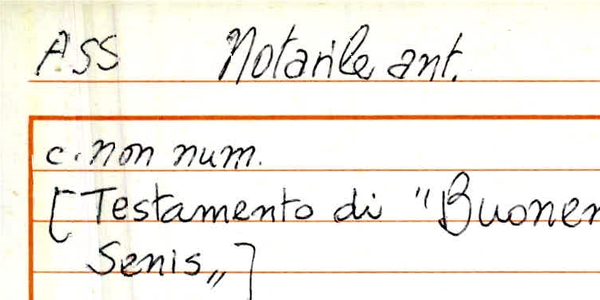 ASS Notarile ant.
c. non num.
[Testamento di "Buoner
Senis„]